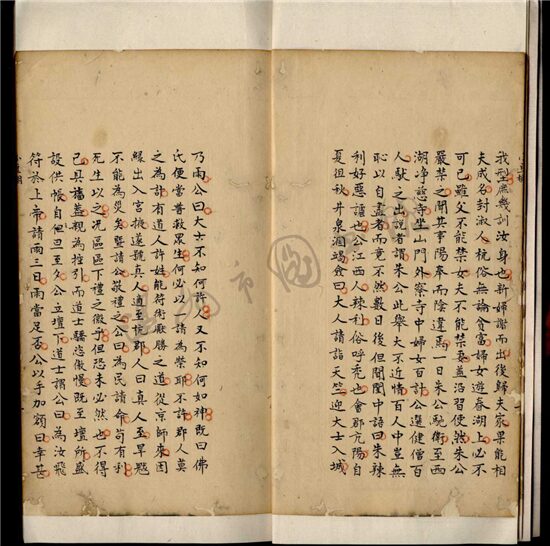 我型庶幾訓汝身也新婦謝而出後歸夫家果能相
夫成名封淑人杭俗無論貧富婦女遊春湖上必不
可已雖父不能禁女夫不能禁妻蓋沿習使然朱公
嚴禁之聞其事陽奉而陰違焉一日朱公騎衛至西
湖净慈寺坐山門外察寺中婦女百計公選健僧百
人馱之出說者謂朱公此舉大不近情百人中豈無
恥以自盡者而竟不然數日後但聞閨中語曰朱辣
利好惡謔也公江西人辣利俗呼禿也會郡亢陽自
夏徂秋井泉涸竭僉曰大人請詣天竺迎大士入城
乃雨公曰大士不知何許人又不知何如神既曰佛
氏便當普救眾生何必以人請為榮耶不許郡人莫
之為計有道人許姓能符術厭勝之道從京師來因
緣出入宮掖遂號真人適至杭郡人曰真人至旱魃
不能為災矣暨請公敬禮之公曰為民請命苟有利
死生以之况區區下禮之微乎但恐未必然也不得
已具旛蓋親為控引而道士驕恣傲慢既至壇所盛
設供帳自但旦至夕公立壇下道士謂公曰為汝飛
符於上帝請雨三日雨當足否公以手加額曰幸甚